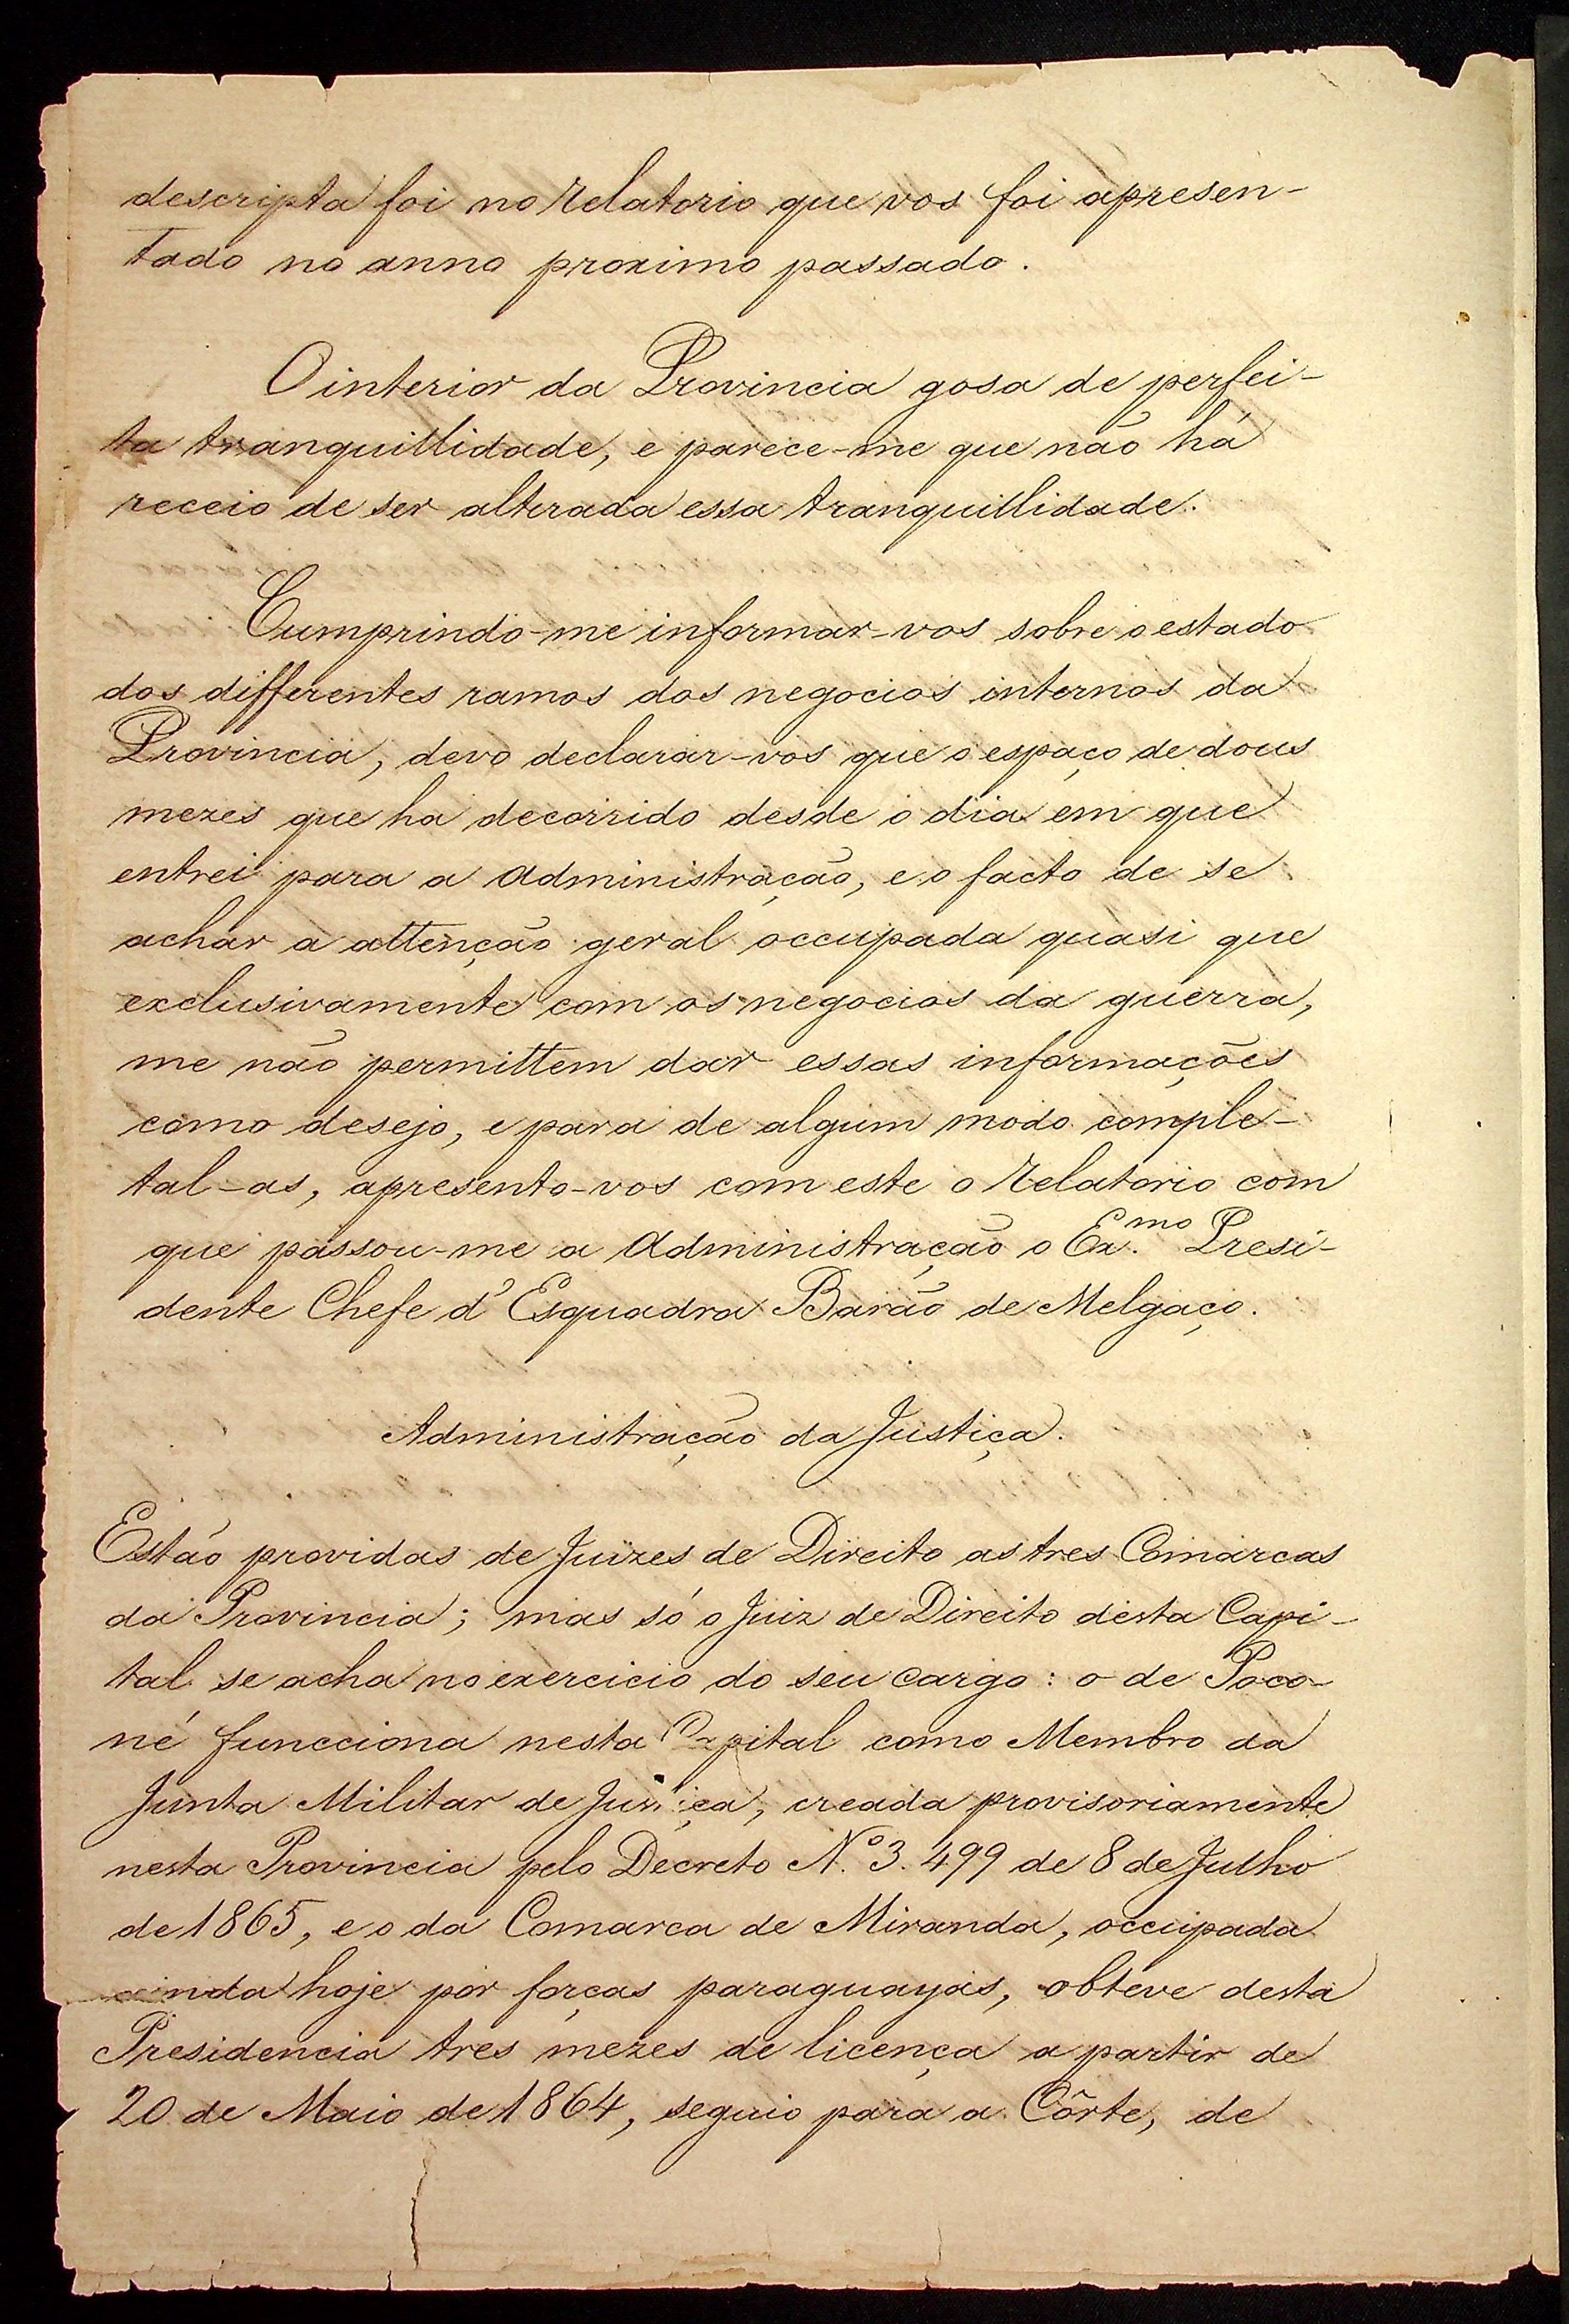 descripta foi no Relatorio que vos foi apresen-
tado no anno proximo passado.
O interior da Provincia gosa de perfei-
ta tranquillidade, e parece-me que não há
receio de ser alterada essa tranquillidade.
Cumprindo-me informar-vos sobre o estado
dos differentes ramos dos negocios internos da
Provincia, devo declarar-vos que o espaço de dous
mezes que ha decorrido desde o dia em que
entrei para a Administração, e o facto de se
achar a attenção geral occupada quasi que
exclusivamente com os negocios da guerra,
me não permittem dar essas informações
como desejo, e para de algum modo comple-
tal-as, apresento-vos com este o Relatorio com
que passou-me a Administração o Ex.mo Presi-
dente Chefe d'Esquadra Barão de Melgaço.
Administração da Justiça.
Estão providas de Juizes de Direito as tres Comarcas
da Provincia; mas só o Juiz de Direito desta Capi-
tal se acha no exercicio do seu cargo: o de Poco-
né funcciona nesta Capital como Membro da
Junta Militar de Justiça, creada provisoriamente
nesta Provincia pelo Decreto N.º 3.499 de 8 de Julho
de 1865, e o da Comarca de Miranda, occupada
ainda hoje por forças paraguayas, obteve desta
Presidencia tres mezes de licença a partir de
20 de Maio de 1864, seguio para a Côrte, de